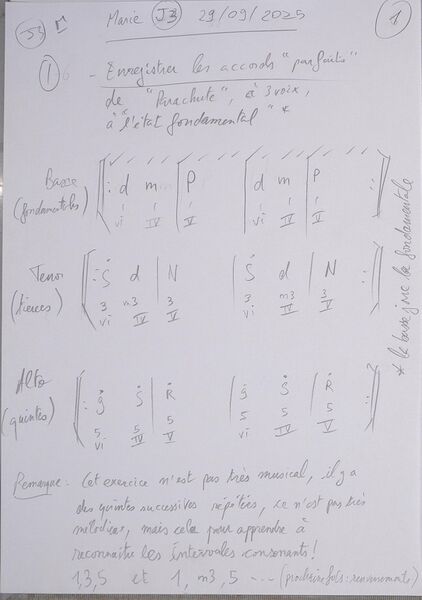 J3
Marie J3 29/09/2025
1
1 - Enregistrer les accords "parfaits"
de "Parachute", à 3 voix,
à "l'état fondamental" *
Basse
(fondamentales)
d m P d m P
vi IV V vi IV V
Tenor
(tierces)
S d N S d N
3 m3 3 3 m3 3
vi IV V vi IV V
Alto
(quintes)
g S R g S R
5 5 5 5 5 5
vi IV V vi IV V
* la basse joue la fondamentale
Remarque : Cet exercice n'est pas très musical, il y a
des quintes successives répétées, ce n'est pas très
mélodieux, mais cela pour apprendre à
reconnaître les Intervalles consonants !
1,3,5 et 1, m3, 5 ... (prochaine fois : renversements)